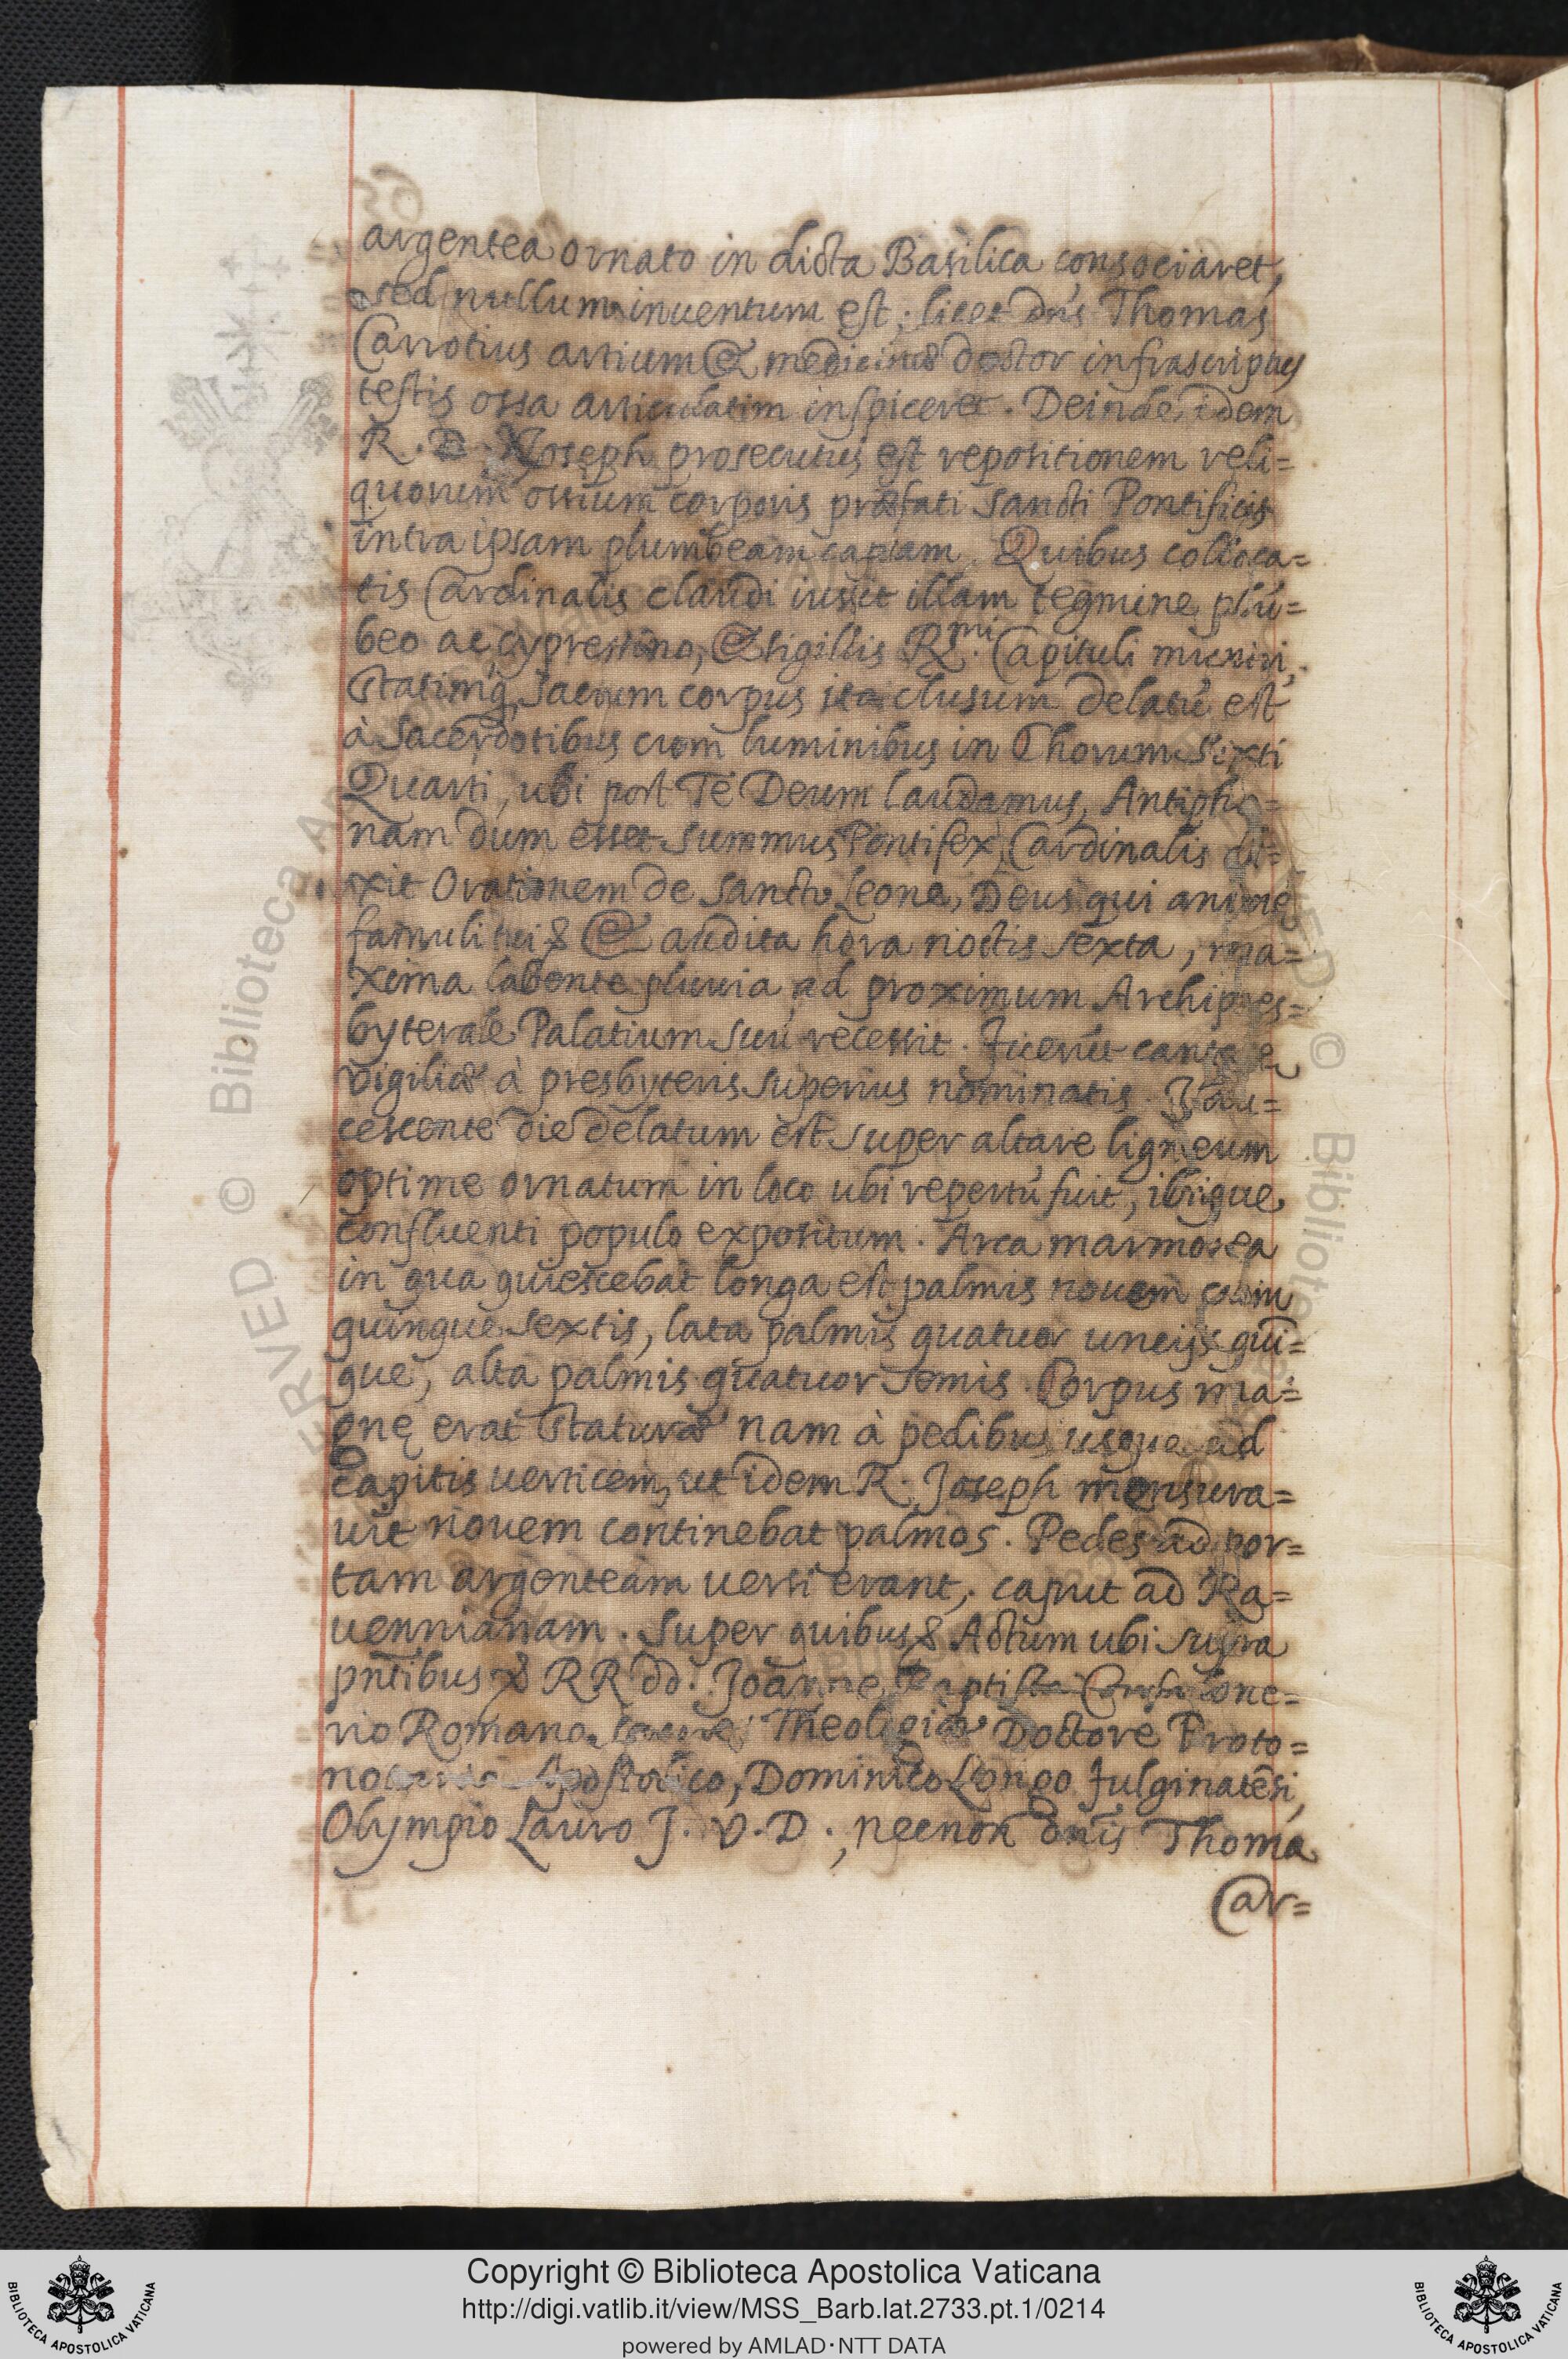 argentea ornato in dicta Basilica consociaret,
sed nullum inuentum est; licet dn̄s Thomas
Carrotius artium & medicinæ doctor infrascriptus
testis ossa articulatim inspiceret. Deinde idem
R. D. Joseph prosecutus est repositionem reli=
quorum ossium corporis præfati sancti Pontificis
intra ipsam plumbeam capsam. Quibus colloca=
tis Cardinalis claudi iussit illam tegmine plū=
beo ac cypressino, & sigillis R.mi Capituli muniri,
statimq̃, sacrum corpus ita clusum delatū est
à sacerdotibus cum luminibus in Chorum Sixti
Quarti, ubi post Te Deum laudamus, Antipho=
nam dum esset summus Pontifex, Cardinalis di=
xit Orationem de sancto Leone, Deus qui animę
famuli tui & & audita hora noctis sexta, ma=
xima labente pluuia, ad proximum Archipres=
byterale Palatium suū recessit. Fuerūt cantatę
vigiliæ à presbyteris superius nominatis. Illu=
cescente die delatum est super altare ligneum
optime ornatum in loco ubi repertū fuit, ibique
confluenti populo expositum. Arca marmorea
in qua quiescebat longa est palmis nouem cum
quinque sextis, lata palmis quatuor uncijs quī=
que, alta palmis quatuor semis. Corpus ma=
gnę erat staturæ nam à pedibus usque ad
capitis uerticem, ut idem R. Joseph mensura=
uit nouem continebat palmos. Pedes ad por=
tam argenteam uersi erant, caput ad Ra=
uennianam. Super quibus & Actum ubi supra
pn̄tibus & RR dd. Joanne Baptista
rio Romano sacræ Theologiæ Doctore Proto=
notario Apostolico, Dominico Longo Fulginatēsi,
Olympio Lauro J. V. D., necnon dn̄is Thoma
Car=
Copyright © Biblioteca Apostolica Vaticana
http://digi.vatlib.it/view/MSS_Barb.lat.2733.pt.1/0214
powered by AMLAD·NTT DATA
BIBLIOTECA APOSTOLICA VATICANA
BIBLIOTECA APOSTOLICA VATICANA